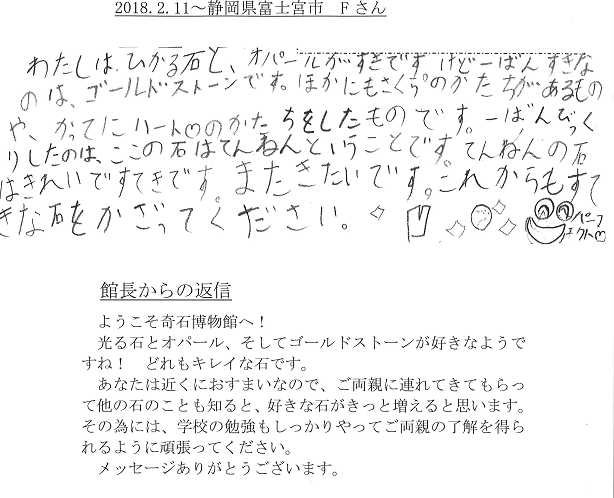 2018.2.11～静岡県富士宮市　Fさん
わたしは、ひかる石と、オパールがすきですけど一ばんすきな
のは、ゴールドストーンです。ほかにもさくらのかたちがあるもの
や、かってにハート♡のかたちをしたものです。一ばんびっく
りしたのは、ここの石はてんねんということです。てんねんの石
はきれいですてきです。またきたいです。これからもすて
きな石をかざってください。
館長からの返信
ようこそ奇石博物館へ！
光る石とオパール、そしてゴールドストーンが好きなようで
すね！　どれもキレイな石です。
あなたは近くにおすまいなので、ご両親に連れてきてもらっ
て他の石のことも知ると、好きな石がきっと増えると思います。
その為には、学校の勉強もしっかりやってご両親の了解を得ら
れるように頑張ってください。
メッセージありがとうございます。